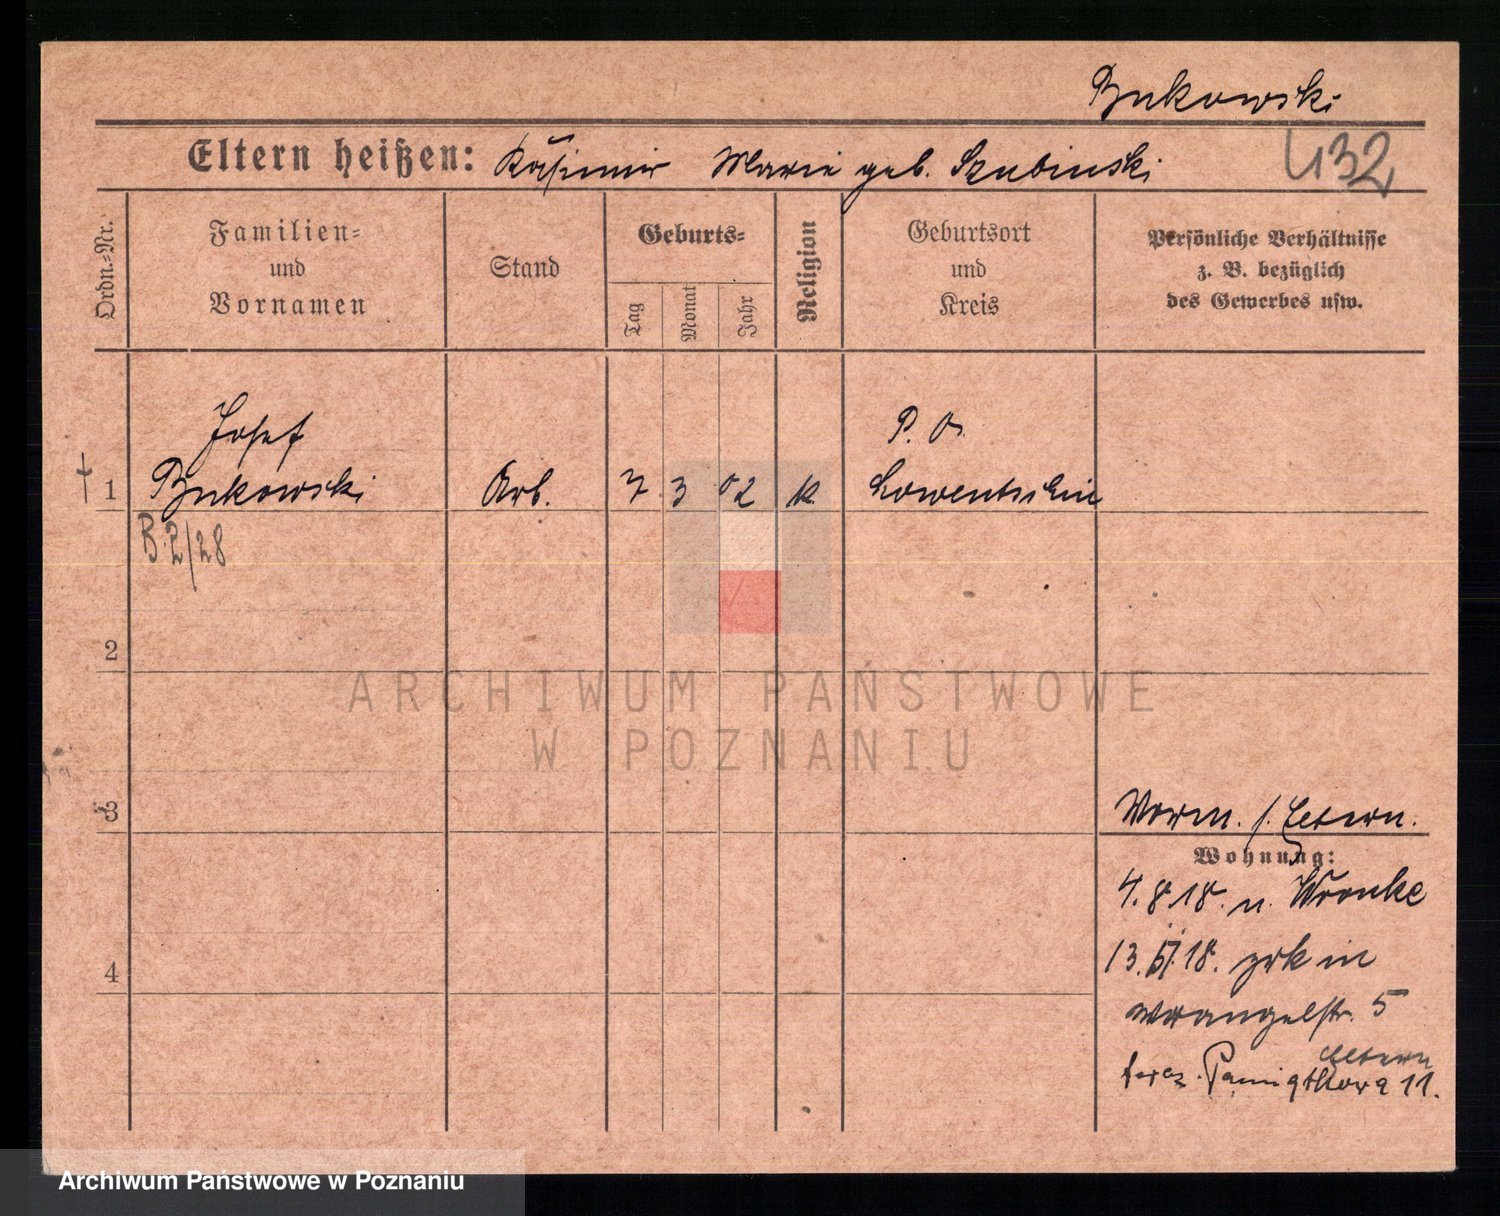 Bukowski
Eltern heißen: Kasimir Marie geb. Szubinski
432
Ordn.-Nr.
Familien-
und
Vornamen
Stand
Geburts-
Tag
Monat
Jahr
Religion
Geburtsort
und
Kreis
Persönliche Verhältnisse
z. B. bezüglich
des Gewerbes usw.
Josef
P. O.
† 1 Bukowski Arb. 7 3 02 k Lowentschin
B. 2/28
2
ARCHIWUM PAŃSTWOWE
W POZNANIU
3
Vorm. s. Eltern.
Wohnung:
4.8.18. n. Wronke
4
13. 18. zrk in
Wrangelstr. 5
Eltern
teraz. Pamiątkowa 11.
Archiwum Państwowe w Poznaniu